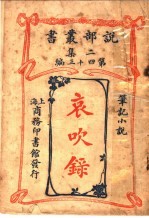 說部叢書
二集
第四十三編
筆記小說
哀吹錄
上海商務印書館發行